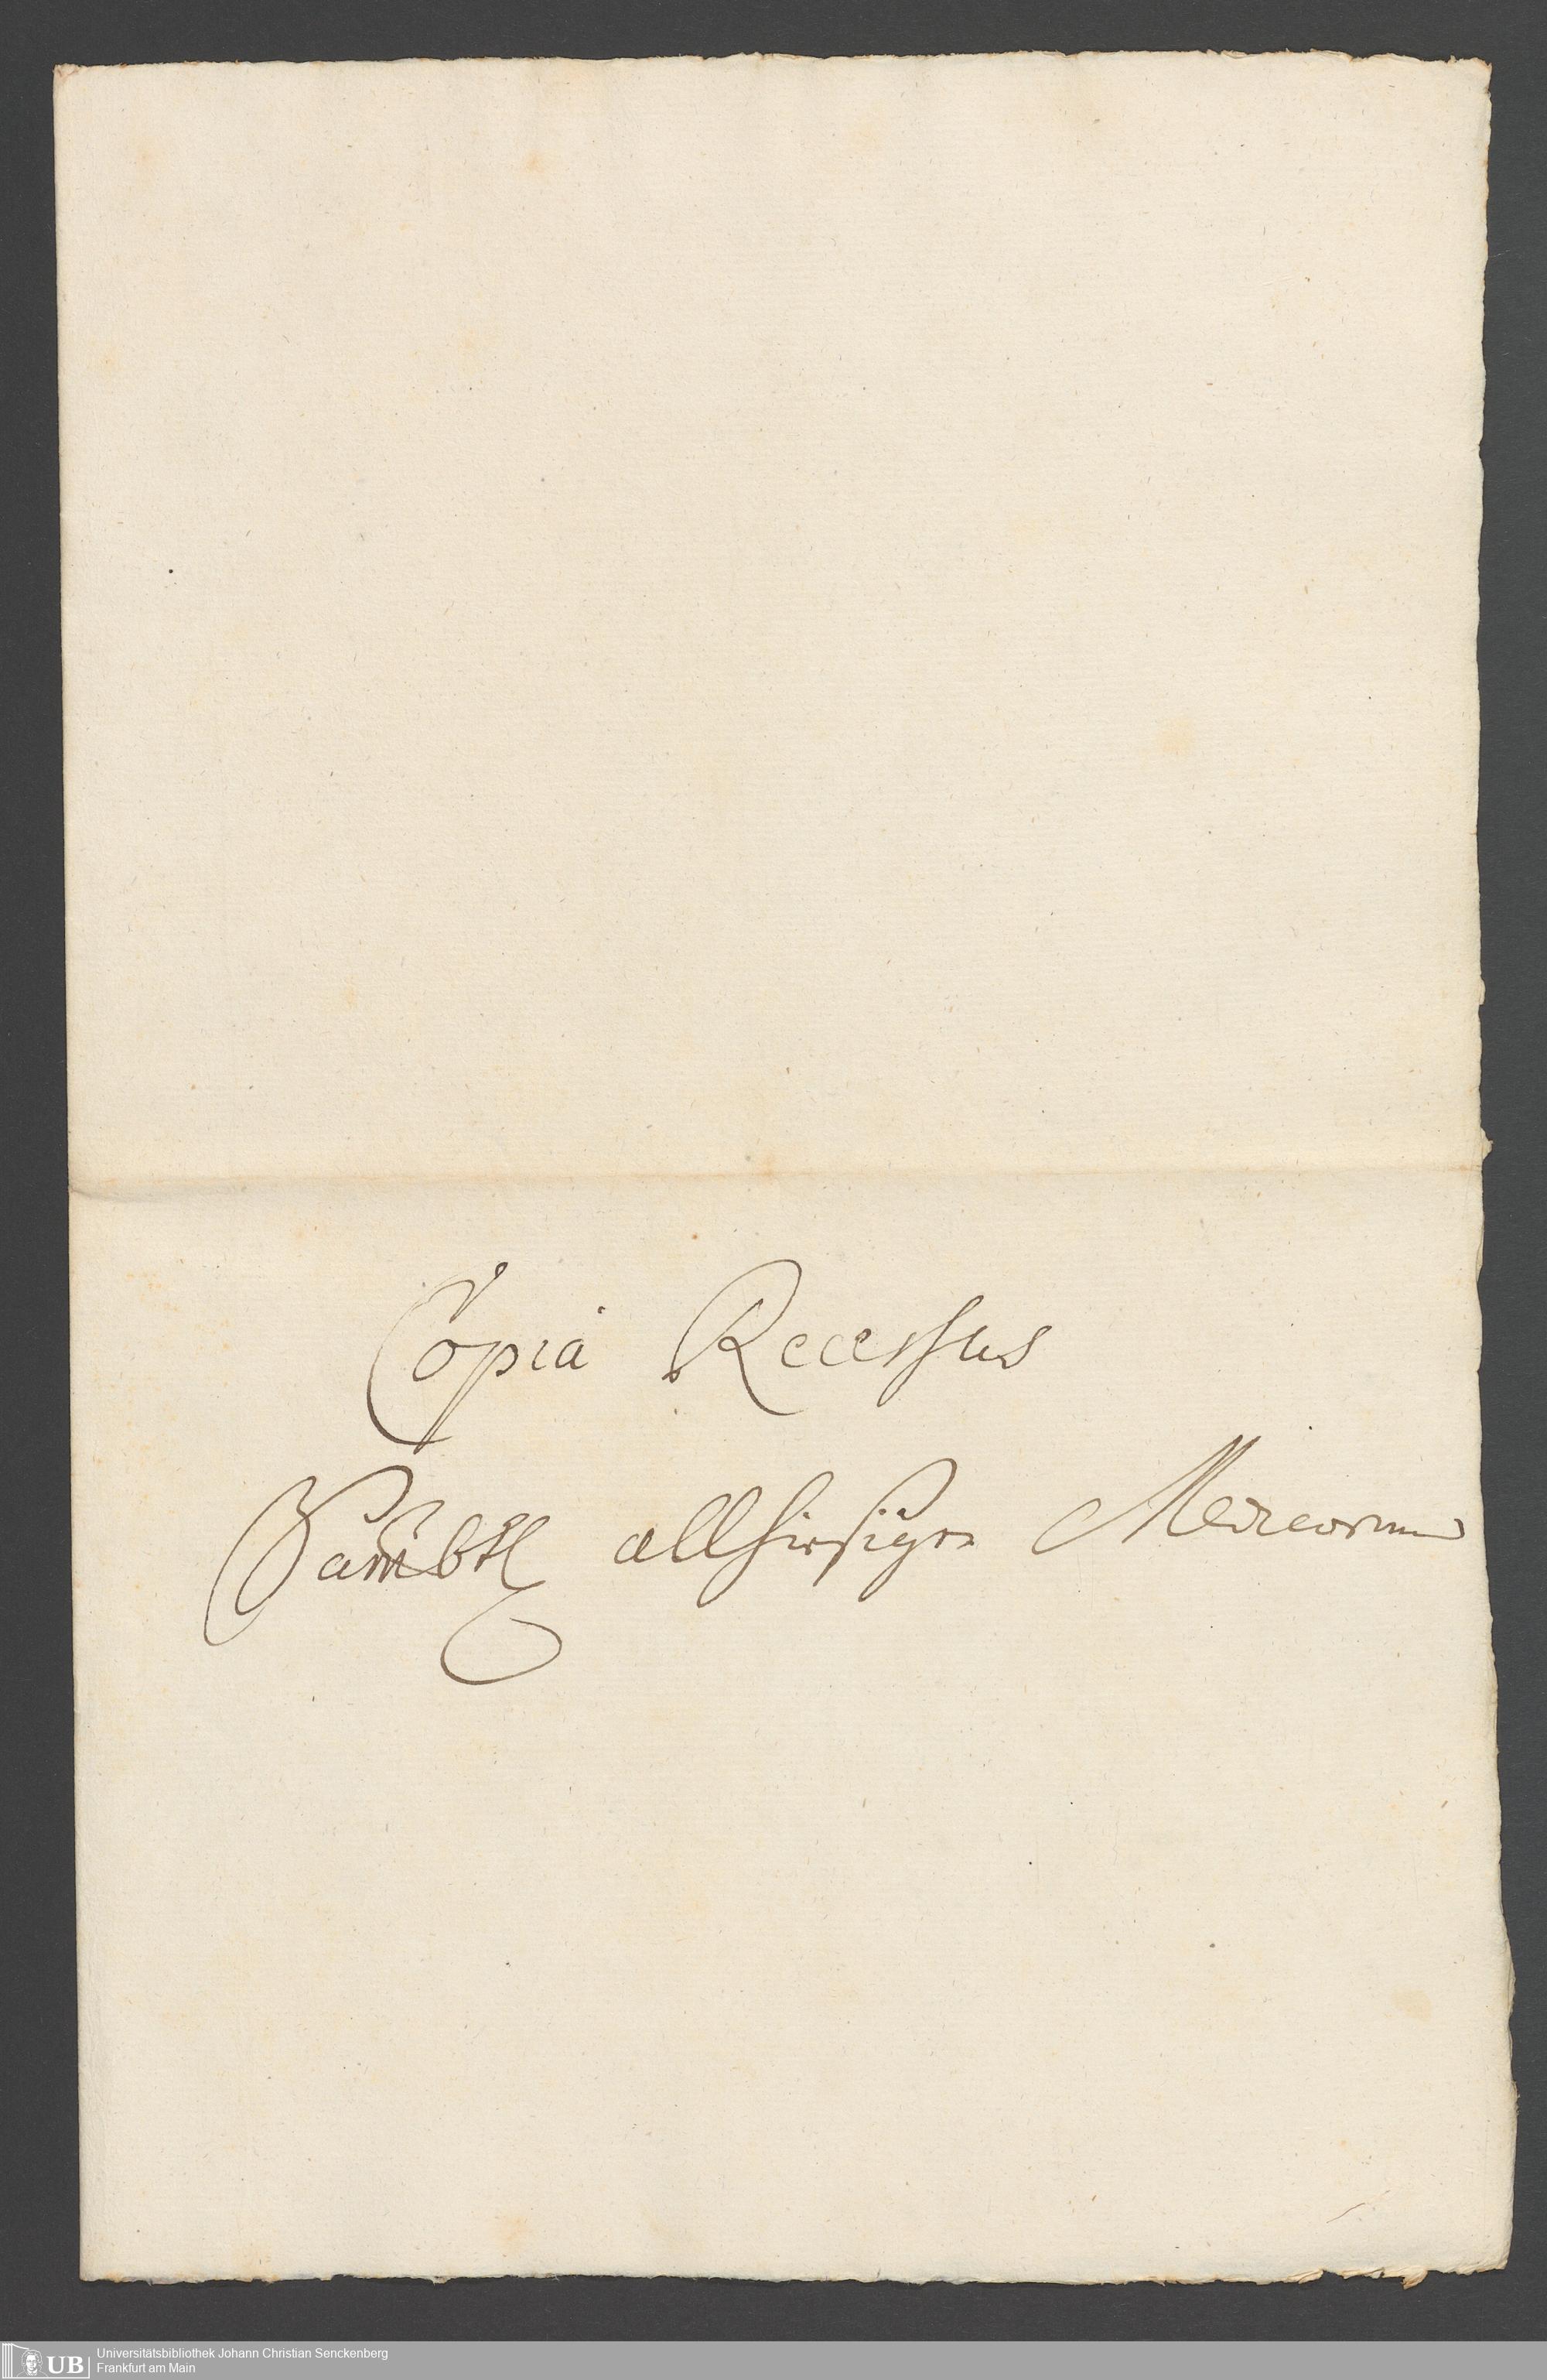 Copia Recessus
Sambtl allhiesiger Medicorum
UB Universitätsbibliothek Johann Christian Senckenberg
Frankfurt am Main